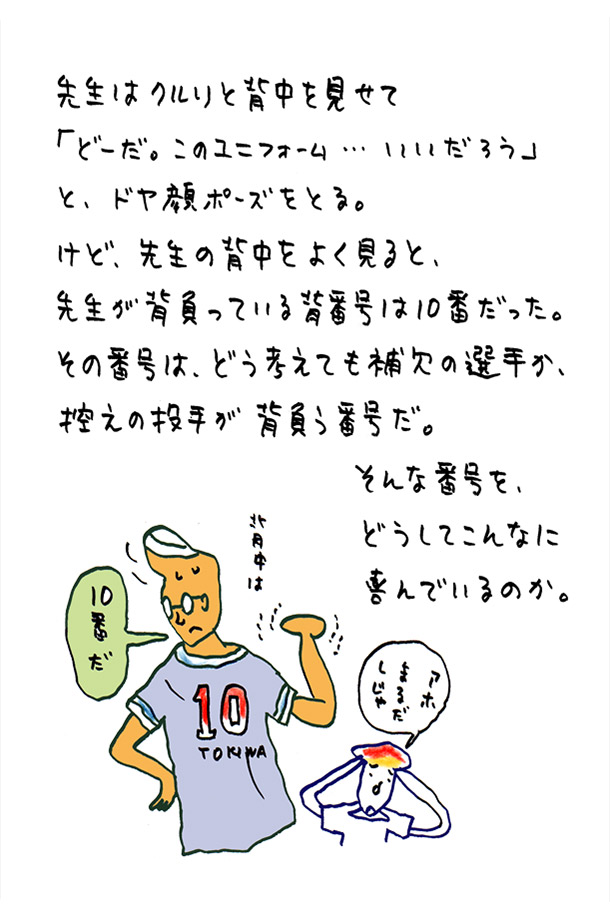 先生はクルリと背中を見せて
「どーだ。このユニフォーム…いいだろう」
と、ドヤ顔ポーズをとる。
けど、先生の背中をよく見ると、
先生が背負っている背番号は10番だった。
その番号は、どう考えても補欠の選手か、
控えの投手が背負う番号だ。
そんな番号を、
どうしてこんなに
喜んでいるのか。
背中は
10番だ
アホ
まるだ
しじゃ
10
TOKIWA